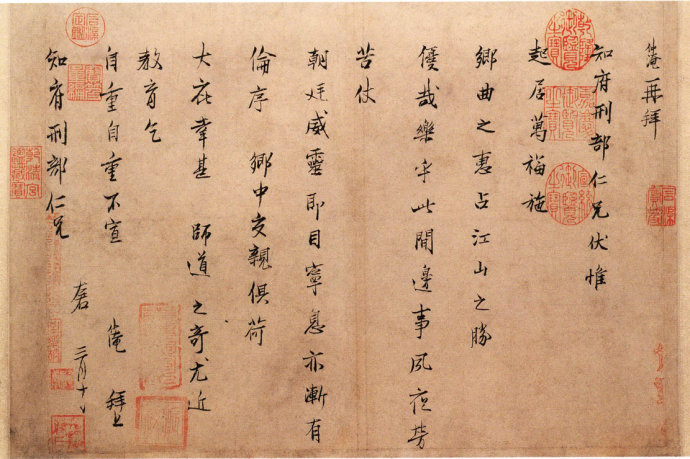 仲淹再拜
知府刑部仁兄伏惟
起居萬福施
鄉曲之惠占江山之勝
優哉樂乎此間邊事夙夜勞
苦仗
朝廷威靈即目寧息亦漸有
倫序 鄉中交親俱荷
大庇幸甚 師道之奇尤近
教育乞
自重自重不宣 仲淹 拜上
知府刑部仁兄 左右 三月十日